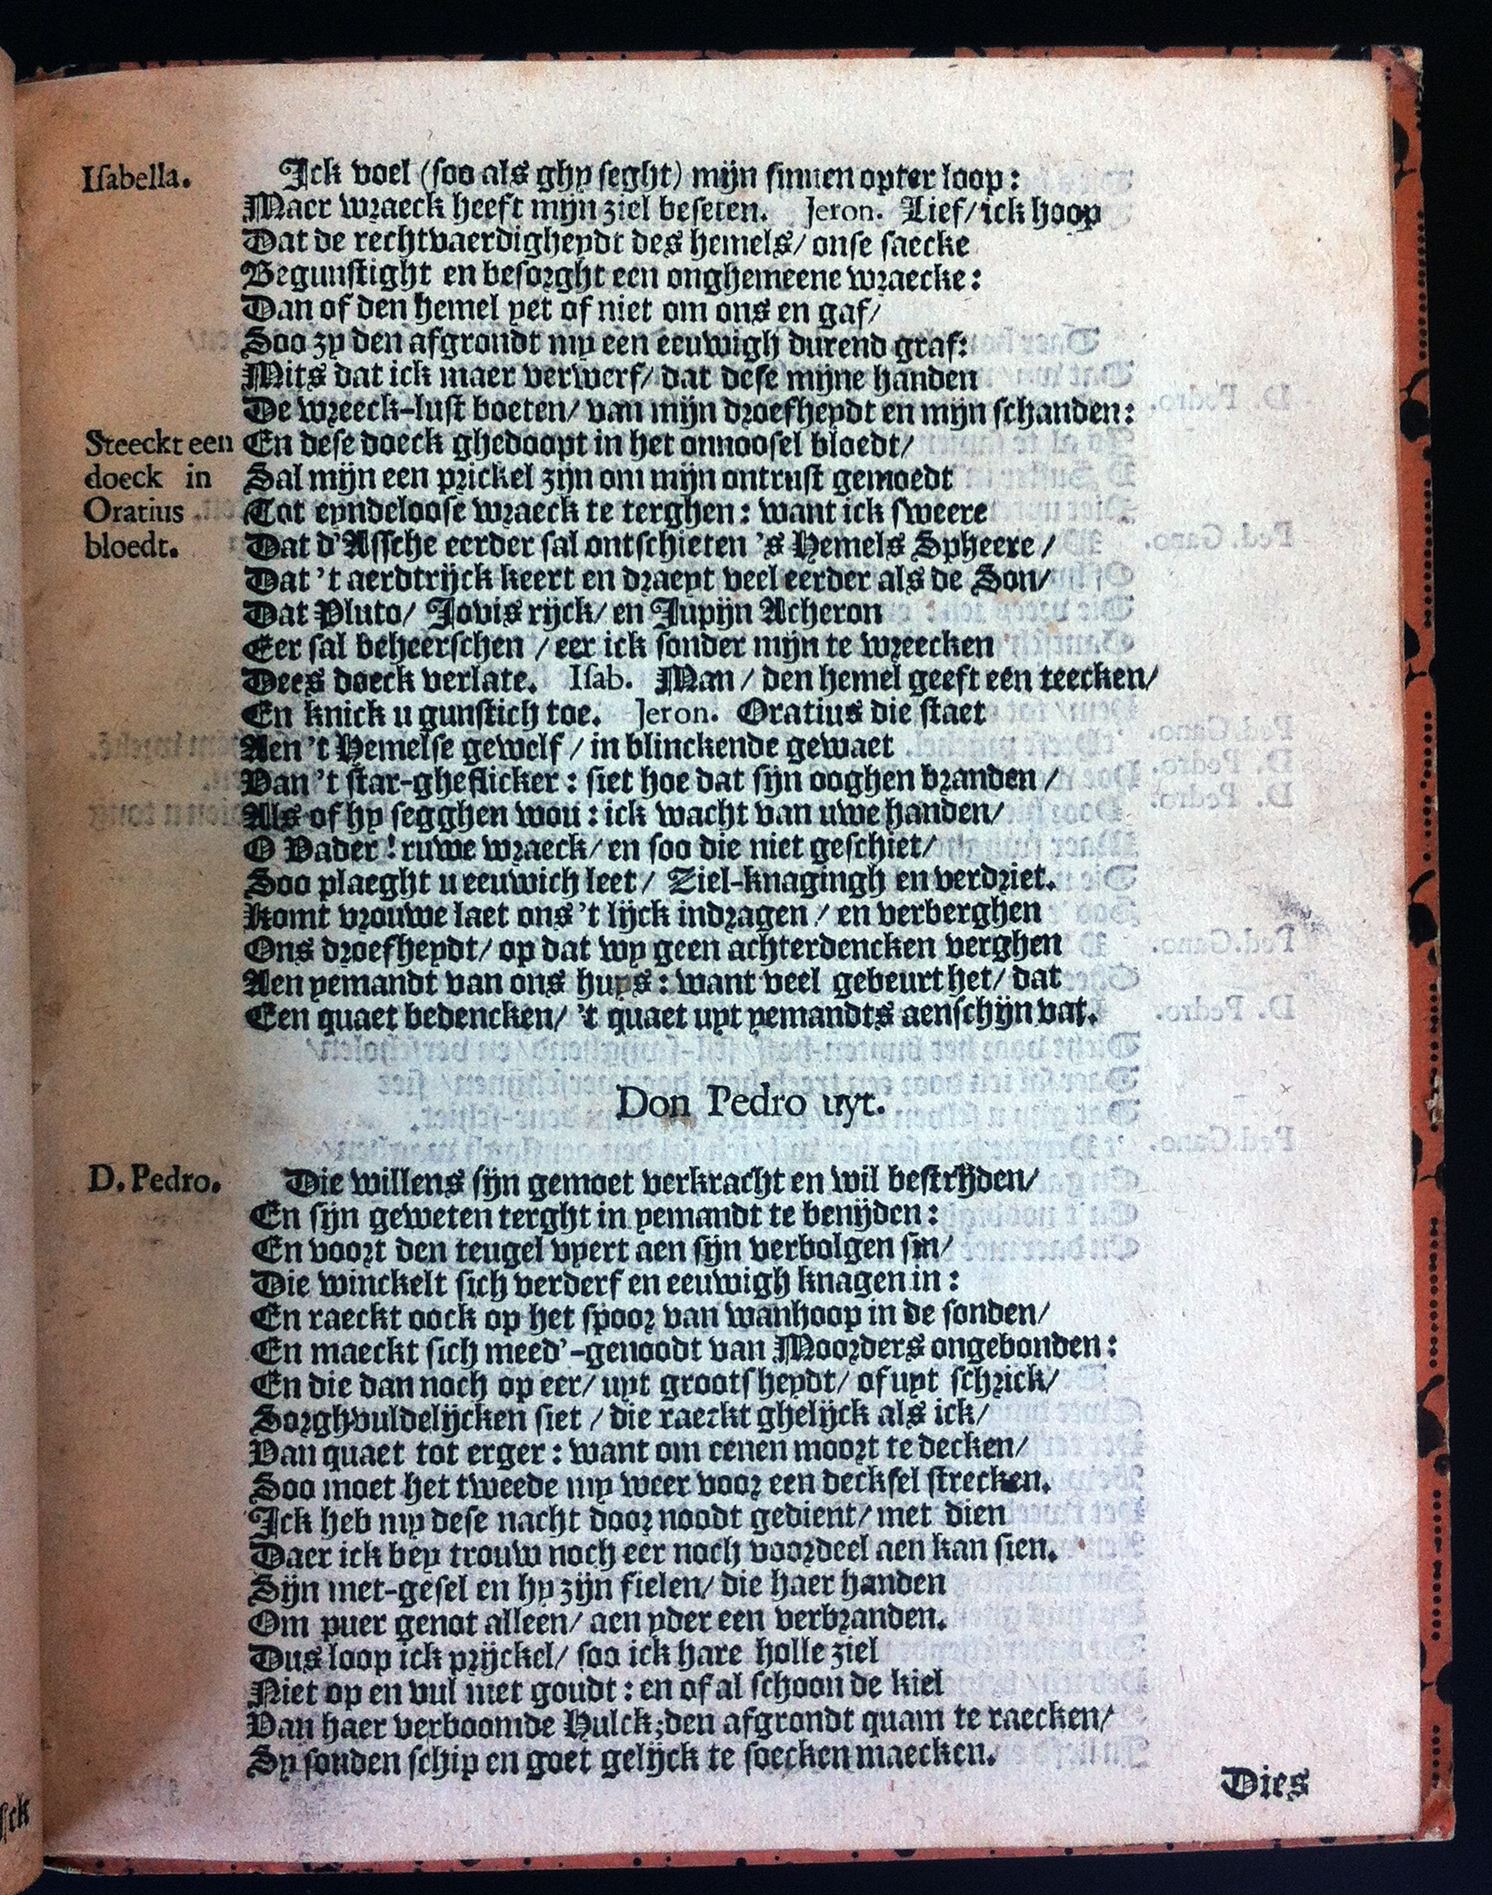 Isabella. Ick voel (soo als ghy seght) mijn sinnen opter loop:
Maer wraeck heeft mijn ziel beseten. Jeron. Lief/ ick hoop
Dat de rechtvaerdigheydt des hemels/ onse saecke
Begunstight en besorght een onghemeene wraecke:
Dan of den hemel yet of niet om ons en gaf/
Soo zy den afgrondt my een eeuwigh durend graf:
Mits dat ick maer verwerf/ dat dese mijne handen
De wreeck-lust boeten/ van mijn droefheydt en mijn schanden:
Steeckt een En dese doeck ghedoopt in het onnoosel bloedt/
doeck in Sal mijn een prickel zijn om mijn ontrust gemoedt
Oratius Tot eyndeloose wraeck te terghen: want ick sweere
bloedt. Dat d'Assche eerder sal ontschieten 's Hemels Spheere /
Dat 't aerdtrijck keert en draeyt veel eerder als de Son/
Dat Pluto/ Jovis rijck/ en Jupijn Acheron
Eer sal beheerschen / eer ick sonder mijn te wreecken
Dees doeck verlate. Isab. Man / den hemel geeft een teecken/
En knick u gunstich toe. Jeron. Oratius die staet
Aen 't Hemelse gewelf / in blinckende gewaet
Van 't star-gheflicker: siet hoe dat sijn ooghen branden /
Als of hy segghen wou: ick wacht van uwe handen/
O Vader! ruwe wraeck/ en soo die niet geschiet/
Soo plaeght u eeuwich leet/ Ziel-knagingh en verdriet.
Komt vrouwe laet ons 't lijck indragen / en verberghen
Ons droefheydt/ op dat wy geen achterdencken verghen
Aen yemandt van ons huys: want veel gebeurt het/ dat
Een quaet bedencken/ 't quaet uyt yemandts aenschijn vat.
Don Pedro uyt.
D. Pedro. Die willens sijn gemoet verkracht en wil bestrijden/
En sijn geweten terght in yemandt te benijden:
En voort den teugel vyert aen sijn verbolgen sin/
Die winckelt sich verderf en eeuwigh knagen in:
En raeckt oock op het spoor van wanhoop in de sonden/
En maeckt sich meed'-genoodt van Moorders ongebonden:
En die dan noch op eer/ uyt grootsheydt/ of uyt schrick/
Sorghvuldelijcken siet / die raeckt ghelijck als ick/
Van quaet tot erger: want om eenen moort te decken/
Soo moet het tweede my weer voor een decksel strecken.
Ick heb my dese nacht door noodt gedient/ met dien
Daer ick bey trouw noch eer noch voordeel aen kan sien.
Sijn met-gesel en hy zijn fielen/ die haer handen
Om puer genot alleen/ aen yder een verbranden.
Dus loop ick prijckel/ soo ick hare holle ziel
Niet op en vul met goudt: en of al schoon de kiel
Van haer verboomde Hulck; den afgrondt quam te raecken/
Sy souden schip en goet gelijck te soecken maecken.
Dies